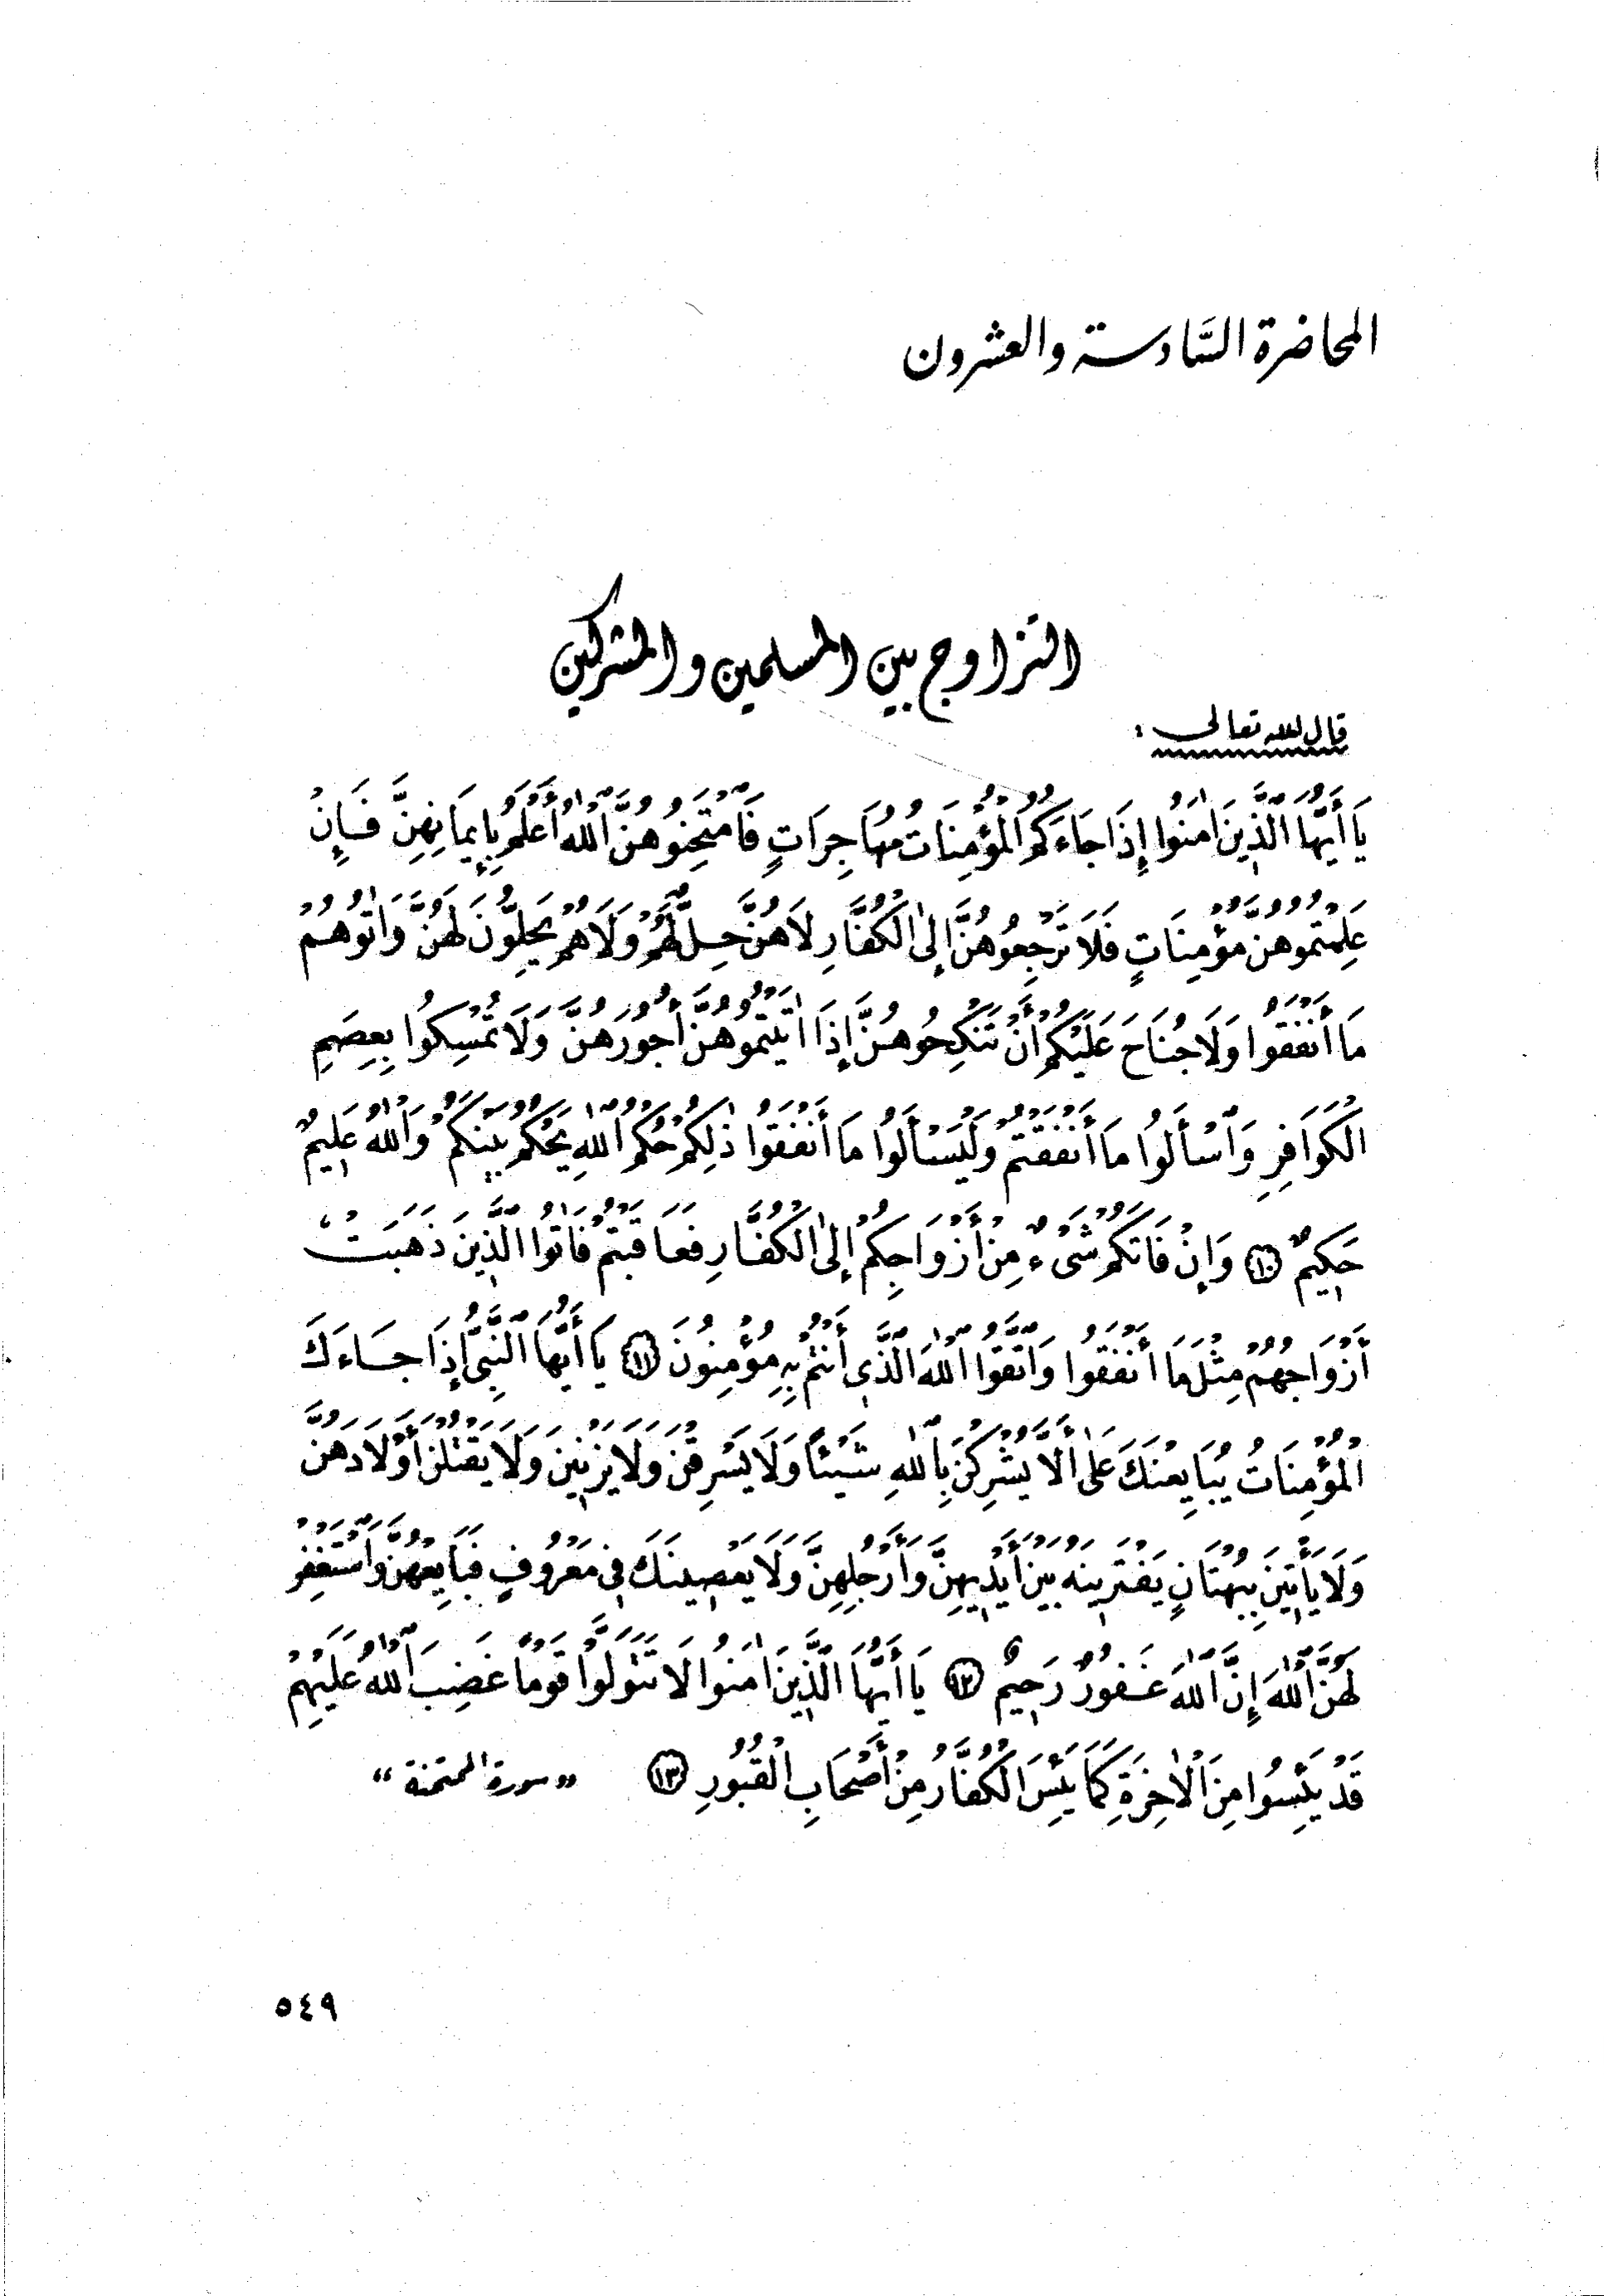 المحاضرة السَّادسة والعشرون
التزاوج بين المسلمين والمشركين
قال الله تعالى :
يَا أَيُّهَا الَّذِينَ اٰمَنُوا إِذَا جَاءَكُمُ الْمُؤْمِنَاتُ مُهَاجِرَاتٍ فَامْتَحِنُوهُنَّ اَللّٰهُ أَعْلَمُ بِإِيمَانِهِنَّ فَإِنْ
عَلِمْتُمُوهُنَّ مُؤْمِنَاتٍ فَلَا تَرْجِعُوهُنَّ إِلَى الْكُفَّارِ لَا هُنَّ حِلٌّ لَهُمْ وَلَا هُمْ يَحِلُّونَ لَهُنَّ وَاٰتُوهُمْ
مَا أَنْفَقُوا وَلَا جُنَاحَ عَلَيْكُمْ أَنْ تَنْكِحُوهُنَّ إِذَا اٰتَيْتُمُوهُنَّ أُجُورَهُنَّ وَلَا تُمْسِكُوا بِعِصَمِ
الْكَوَافِرِ وَاسْأَلُوا مَا أَنْفَقْتُمْ وَلْيَسْأَلُوا مَا أَنْفَقُوا ذٰلِكُمْ حُكْمُ اللّٰهِ يَحْكُمُ بَيْنَكُمْ وَاللّٰهُ عَلِيمٌ
حَكِيمٌ ١٠ وَإِنْ فَاتَكُمْ شَيْءٌ مِنْ أَزْوَاجِكُمْ إِلَى الْكُفَّارِ فَعَاقَبْتُمْ فَاٰتُوا الَّذِينَ ذَهَبَتْ
أَزْوَاجُهُمْ مِثْلَ مَا أَنْفَقُوا وَاتَّقُوا اللّٰهَ الَّذِي أَنْتُمْ بِهِ مُؤْمِنُونَ ١١ يَا أَيُّهَا النَّبِيُّ إِذَا جَاءَكَ
الْمُؤْمِنَاتُ يُبَايِعْنَكَ عَلَى أَلَّا يُشْرِكْنَ بِاللّٰهِ شَيْئًا وَلَا يَسْرِقْنَ وَلَا يَزْنِينَ وَلَا يَقْتُلْنَ أَوْلَادَهُنَّ
وَلَا يَأْتِينَ بِبُهْتَانٍ يَفْتَرِينَهُ بَيْنَ أَيْدِيهِنَّ وَأَرْجُلِهِنَّ وَلَا يَعْصِينَكَ فِي مَعْرُوفٍ فَبَايِعْهُنَّ وَاسْتَغْفِرْ
لَهُنَّ اللّٰهَ إِنَّ اللّٰهَ غَفُورٌ رَحِيمٌ ١٢ يَا أَيُّهَا الَّذِينَ اٰمَنُوا لَا تَتَوَلَّوْا قَوْمًا غَضِبَ اللّٰهُ عَلَيْهِمْ
قَدْ يَئِسُوا مِنَ الْاٰخِرَةِ كَمَا يَئِسَ الْكُفَّارُ مِنْ أَصْحَابِ الْقُبُورِ ١٣ «سورة الممتحنة»
٥٤٩